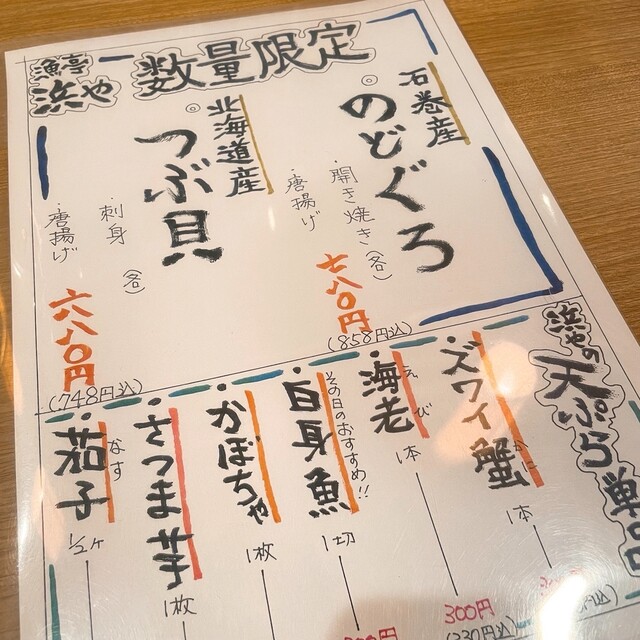 漁亭
浜や
数量限定
石巻産
◎のどぐろ
・開き焼き(各)
・唐揚げ
七八〇円
(858円込)
北海道産
◎つぶ貝
・刺身(各)
・唐揚げ
六八〇円
(748円込)
浜やの天ぷら単品
・ズワイ蟹 かに
1本
・海老 えび
1本
300円
(330円込)
・白身魚 その日のおすすめ!!
1切
300円
・かぼちゃ
1枚
・さつま芋
1枚
・茄子 なす
1/2ヶ